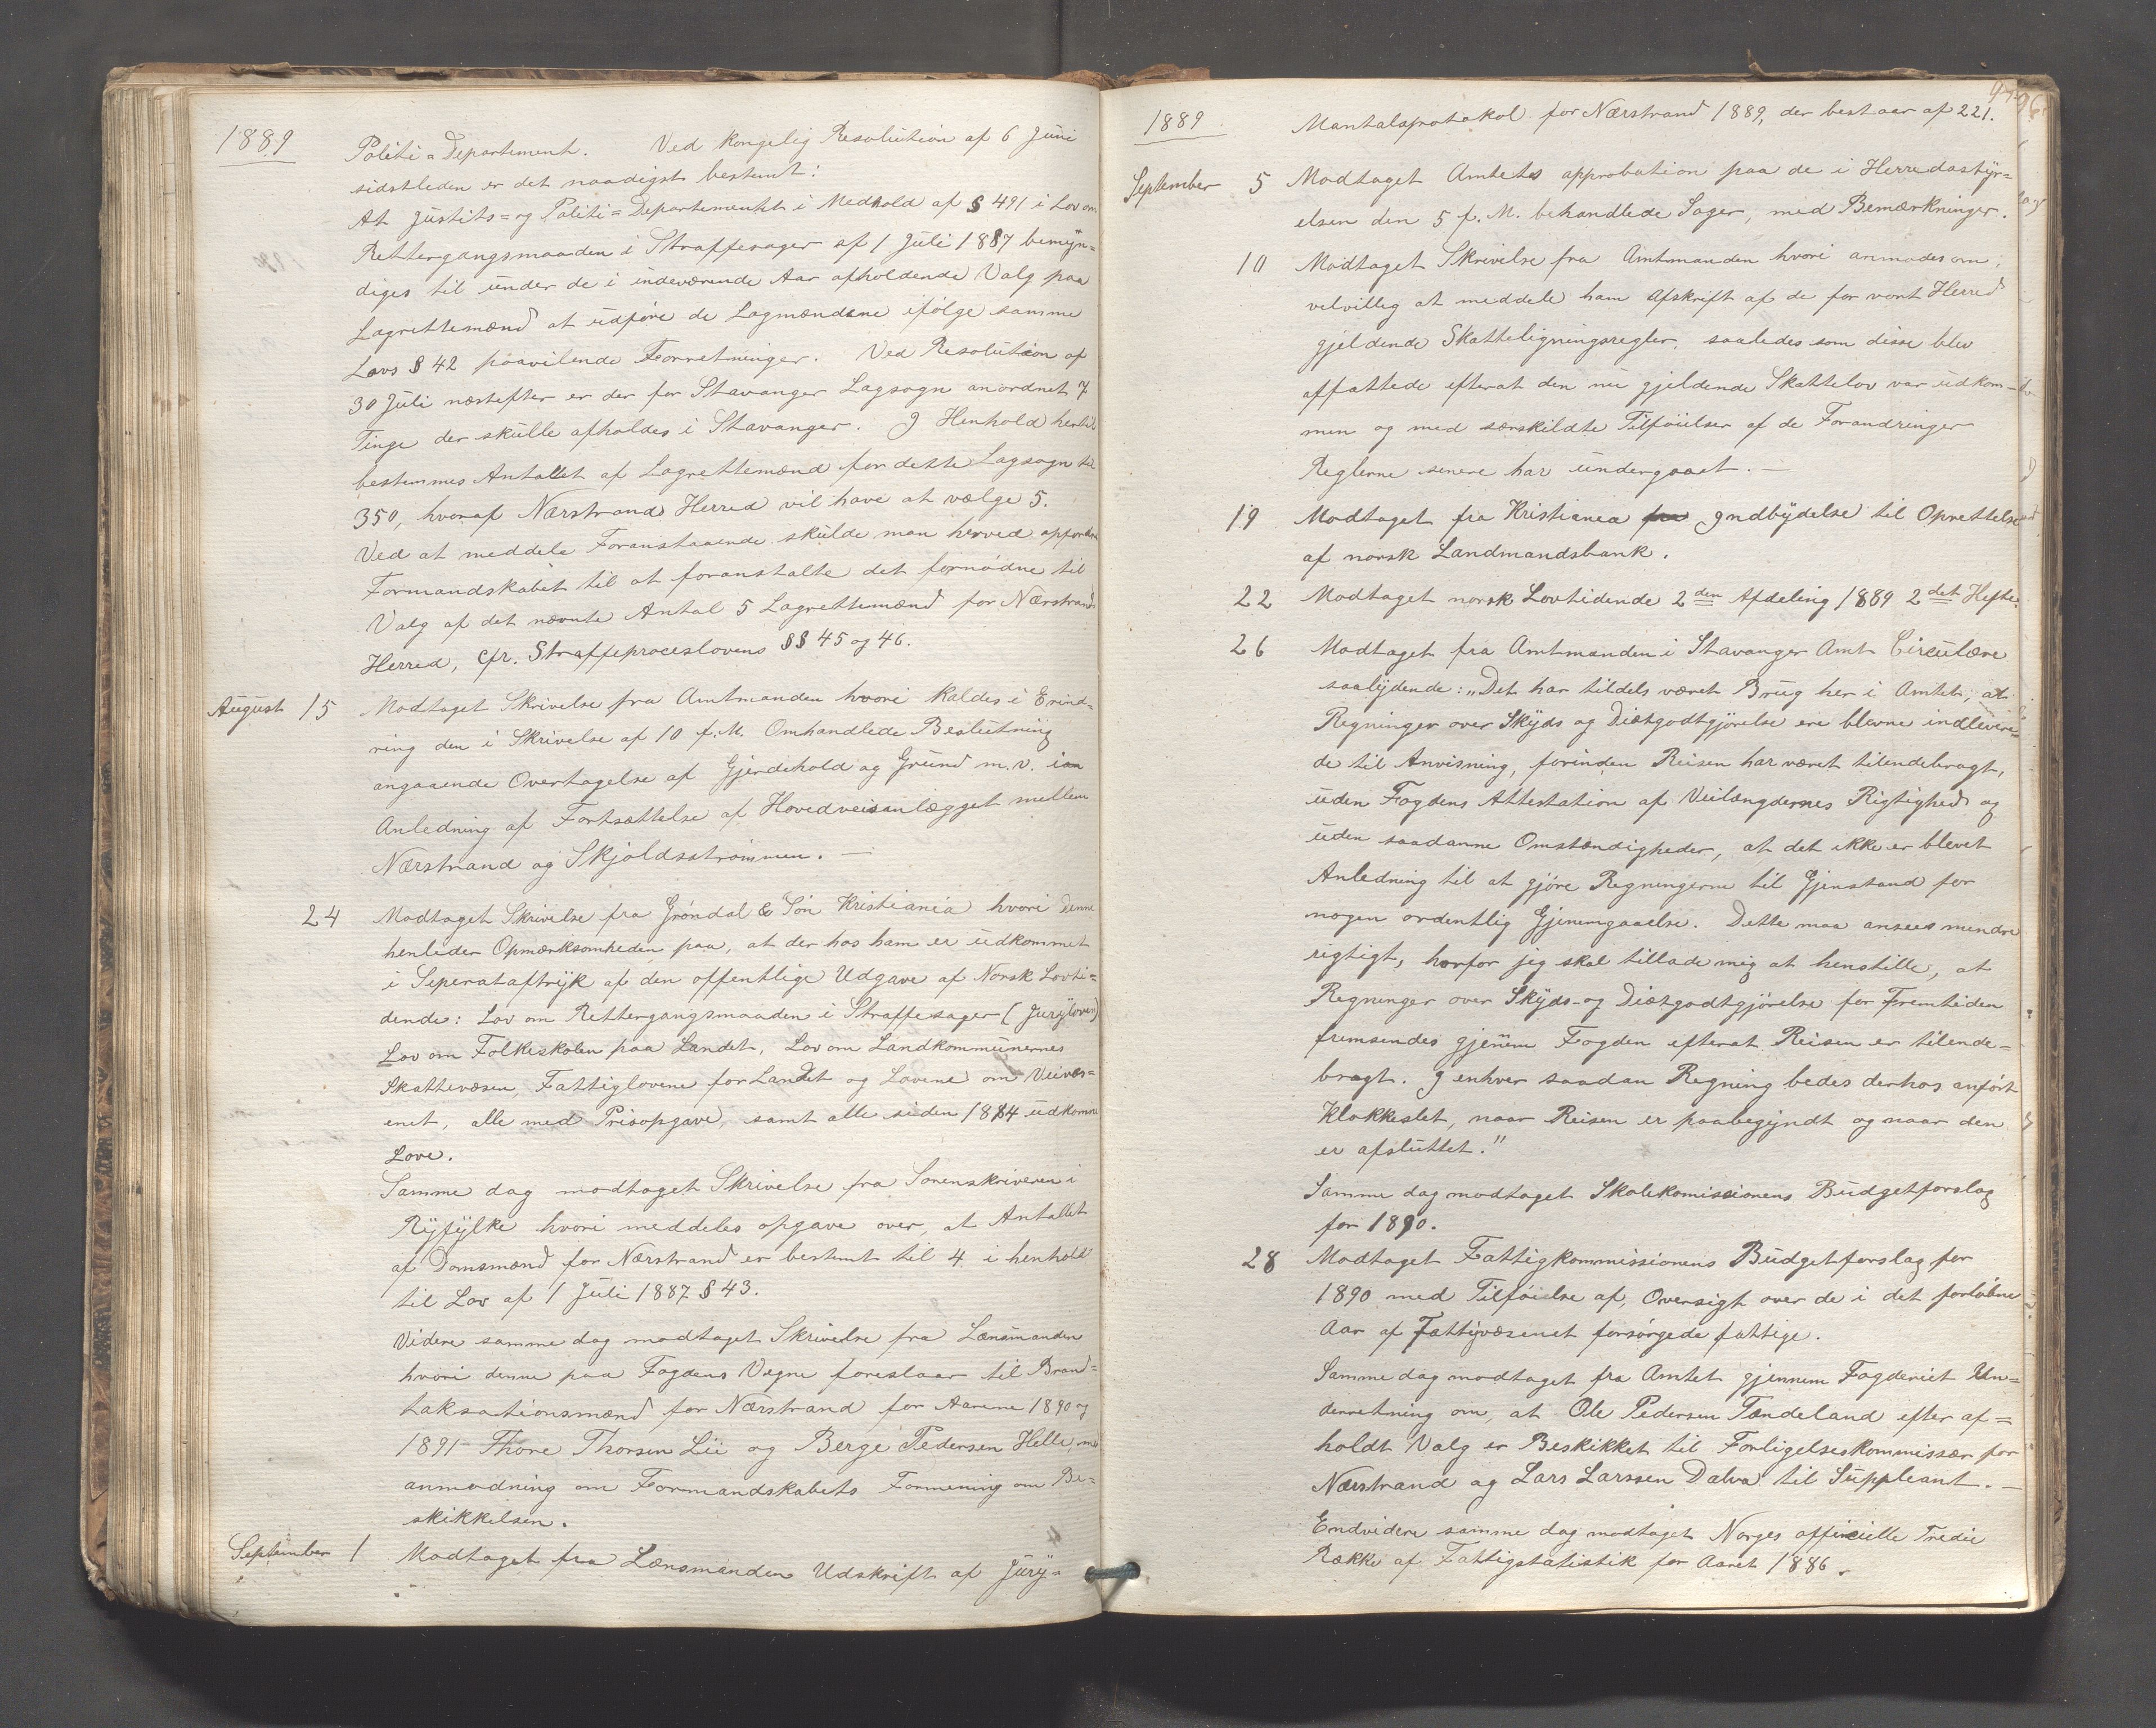 1889
Politi=Departement. Ved kongelig Resolution af 6 Juni
sidstleden er det naadigst bestemt:
At Justits= og Politi=Departementet i Medhold af § 491 i Lov om
Rettergangsmaaden i Straffesager af 1 Juli 1887 bemyn=
diges til under de i indeværende Aar afholdende Valg paa
Lagrettemænd at udføre de Lagmændene ifølge samme
Lovs § 42 paavilende Forretninger. Ved Resolution af
30 Juli næstefter er der for Stavanger Lagsogn anordnet 7
Tinge der skulle afholdes i Stavanger. I Henhold hertil
bestemmes Antallet af Lagrettemænd for dette Lagsogn til
350, hvoraf Nærstrand Herred vil have at vælge 5.
Ved at meddele Foranstaaende skulde man herved opfordre
Formandskabet til at foranstalte det fornødne til
Valg af det nævnte Antal 5 Lagrettemænd for Nærstrand
Herred, cfr. Straffeproceslovens §§ 45 og 46.
August 15 Modtaget Skrivelse fra Amtmanden hvori kaldes i Erind=
ring den i Skrivelse af 10 f. M. Omhandlede Beslutning
angaaende Overtagelse af Gjerdehold og Grund m. v. i an
Anledning af Fortsættelse af Hovedveisanlægget mellem
Nærstrand og Skjoldsstrømmen. —
24 Modtaget Skrivelse fra Grøndal & Søn Kristiania hvori denne
henleder Opmærksomheden paa, at der hos ham er udkommet
i Seperataftryk af den offentlige Udgave af Norsk Lovti=
dende: Lov om Rettergangsmaaden i Straffesager (Juryloven)
Lov om Folkeskolen paa Landet, Lov om Landkommunernes
Skattevæsen, Fattiglovene for Landet og Lovene om Veivæs=
enet, alle med Prisopgave, samt alle siden 1884 udkomne
Love.
Samme dag modtaget Skrivelse fra Sorenskriveren i
Ryfylke hvori meddeles opgave over, at Antallet
af Domsmænd for Nærstrand er bestemt til 4 i henhold
til Lov af 1 Juli 1887 § 43.
Videre samme dag modtaget Skrivelse fra Lænsmanden
hvori denne paa Fogdens Vegne foreslaar til Brand=
taksationsmænd for Nærstrand for Aarene 1890 og
1891 Thore Thorsen Lii og Berge Pedersen Helle, med
anmodning om Formandskabets Formening om Be=
skikkelsen.
September 1 Modtaget fra Lænsmanden Udskrift af Jury=
1889
Mantalsprotokol for Nærstrand 1889, der bestaar af 221.
96
September 5 Modtaget Amtets approbation paa de i Herredsstyr=
elsen den 5 f. M. behandlede Sager, med Bemærkninger.
10 Modtaget Skrivelse fra Amtmanden hvori anmodes om,
velvillig at meddele ham Afskrift af de for vort Herred
gjeldende Skatteligningsregler, saaledes som disse blev
affattede efterat den nu gjeldende Skattelov var udkom-
men og med særskildte Tilføielser af de Forandringer
Reglerne senere har undergaaet. —
19 Modtaget fra Kristiania fra Indbydelse til Oprettelse
af norsk Landmandsbank.
22 Modtaget norsk Lovtidende 2den Afdeling 1889 2det Hefte.
26 Modtaget fra Amtmanden i Stavanger Amt Circulære
saalydende: „Det har tildels været Brug her i Amtet, at
Regninger over Skyds og Diætgodtgjørelse ere blevne indlevere=
de til Anvisning, forinden Reisen har været tilendebragt,
uden Fogdens Attestation af Veilængdernes Rigtighed og
uden saadanne Omstændigheder, at det ikke er blevet
Anledning til at gjøre Regningerne til Gjenstand for
nogen ordentlig Gjennemgaaelse. Dette maa ansees mindre
rigtigt, horfor jeg skal tillade mig at henstille, at
Regninger over Skyds- og Diætgodtgjørelse for Fremtiden
fremsendes gjennem Fogden efterat Reisen er tilende=
bragt. I enhver saadan Regning bedes derhos anført
Klokkeslet, naar Reisen er paabegyndt og naar den
er afsluttet."
Samme dag modtaget Skolekomissionens Budgetforslag
for 1890.
28 Modtaget Fattigkommissionens Budgetforslag for
1890 med Tilføielse af, Oversigt over de i det forløbne
Aar af Fattigvæsenet forsørgede fattige.
Samme dag modtaget fra Amtet gjennem Fogderiet Un=
derretning om, at Ole Pedersen Tændeland efter af=
holdt Valg er Beskikket til Forligelseskommissær for
Nærstrand og Lars Larssen Dalva til Suppleant. —
Endvidere samme dag modtaget Norges officielle Tredie
Række af Fattigstatistik for Aaret 1886.